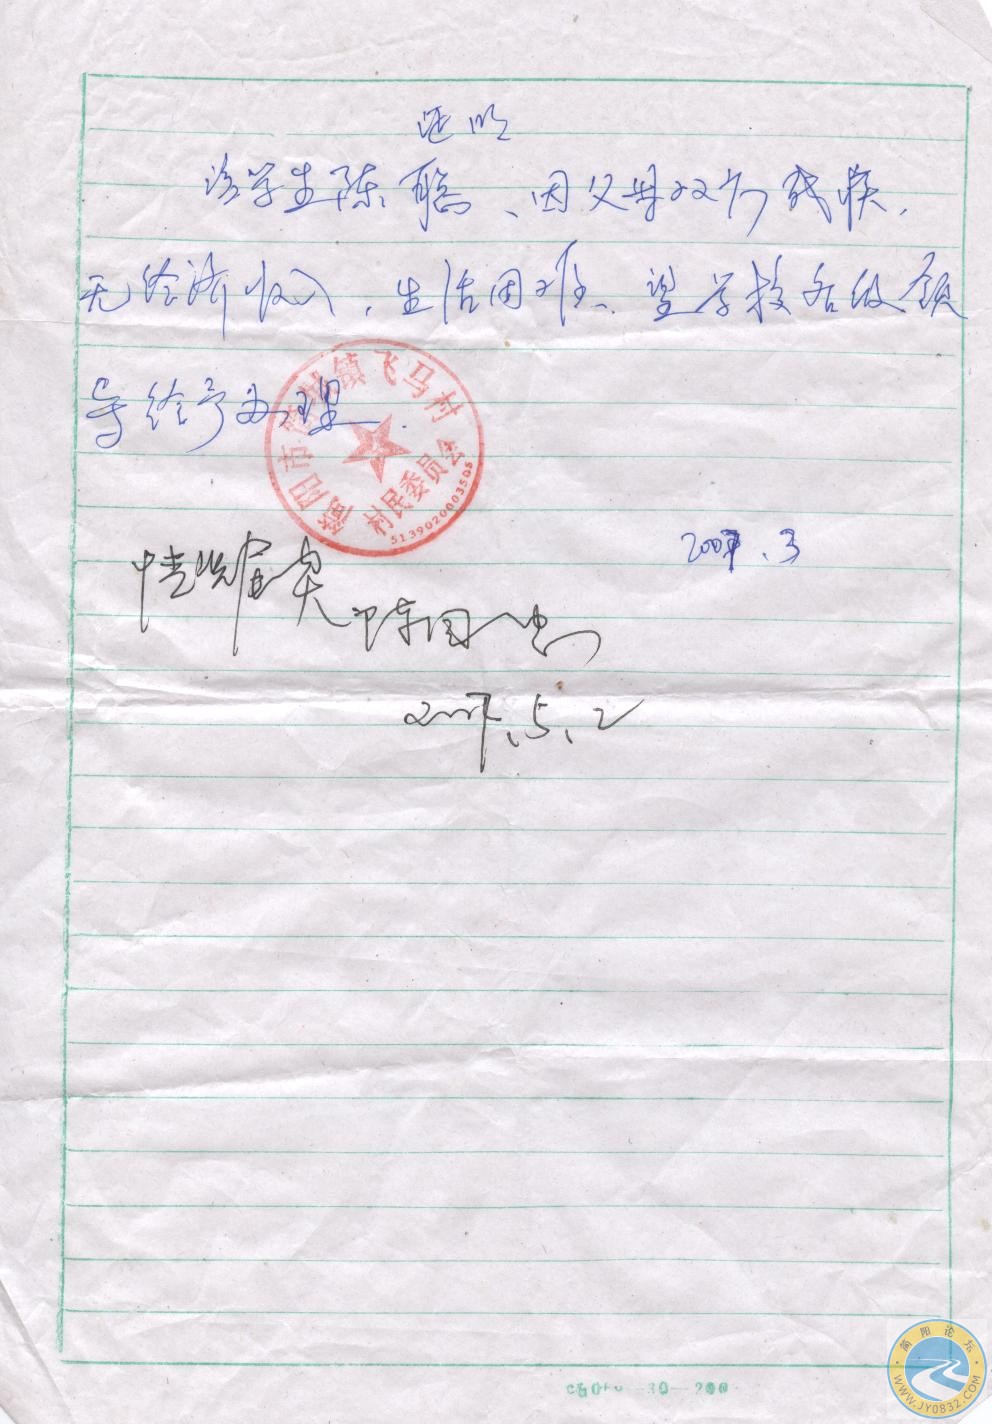 证明
该学生陈聪、因父母双方残疾,
无经济收入,生活困难、望学校各级领
导给予办理.
简阳市 镇飞马村
村民委员会
5139020003505
2007.3
情况属实
陈国忠
2007.5.2
30-200
简阳论坛
WWW.JY0832.COM